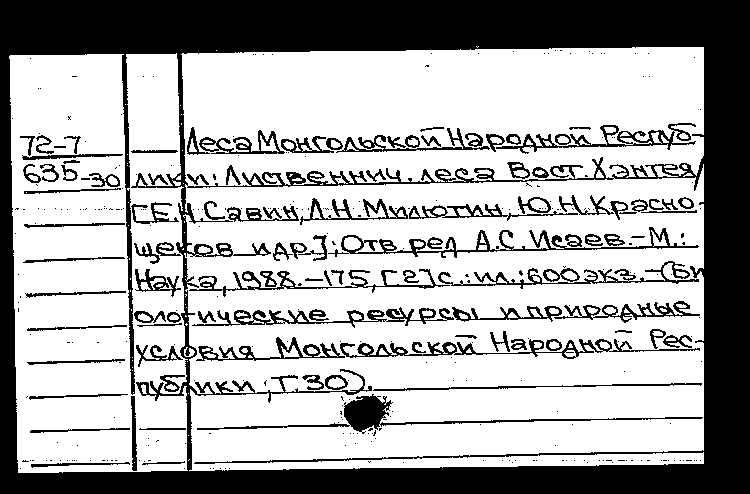 72-7 Леса Монгольской Народной Респуб-
635-30 лики: Лиственнич. леса Вост. Хэнтея/
[Е.Н. Савин, Л.Н. Милютин, Ю.Н. Красно-
щеков и др.]; Отв. ред. А.С. Исаев.-М.:
Наука, 1988.-175,[2]с.:ил.;600экз.-(Би
ологические ресурсы и природные
условия Монгольской Народной Рес-
публики; Т.30).